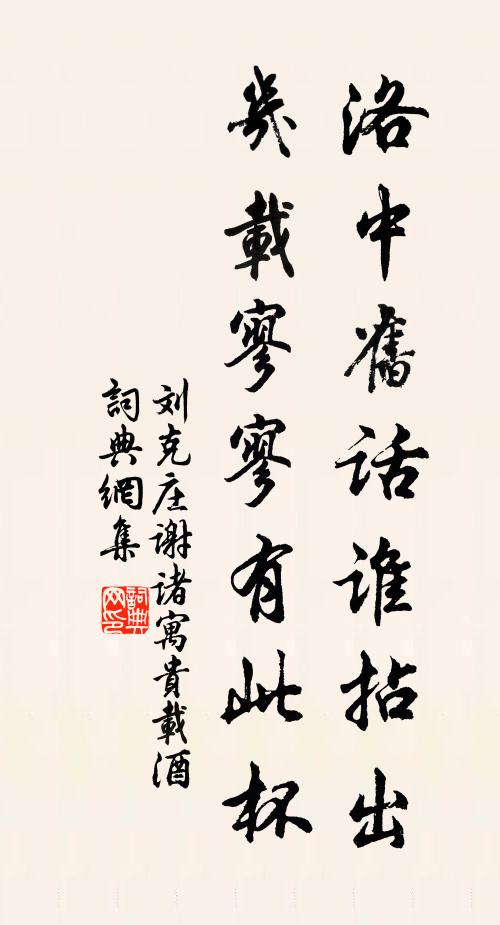 洛中舊话谁拈出
几載寥寥有此杯
刘克庄谢诸寓貴載酒
詞典網集
詞典网印